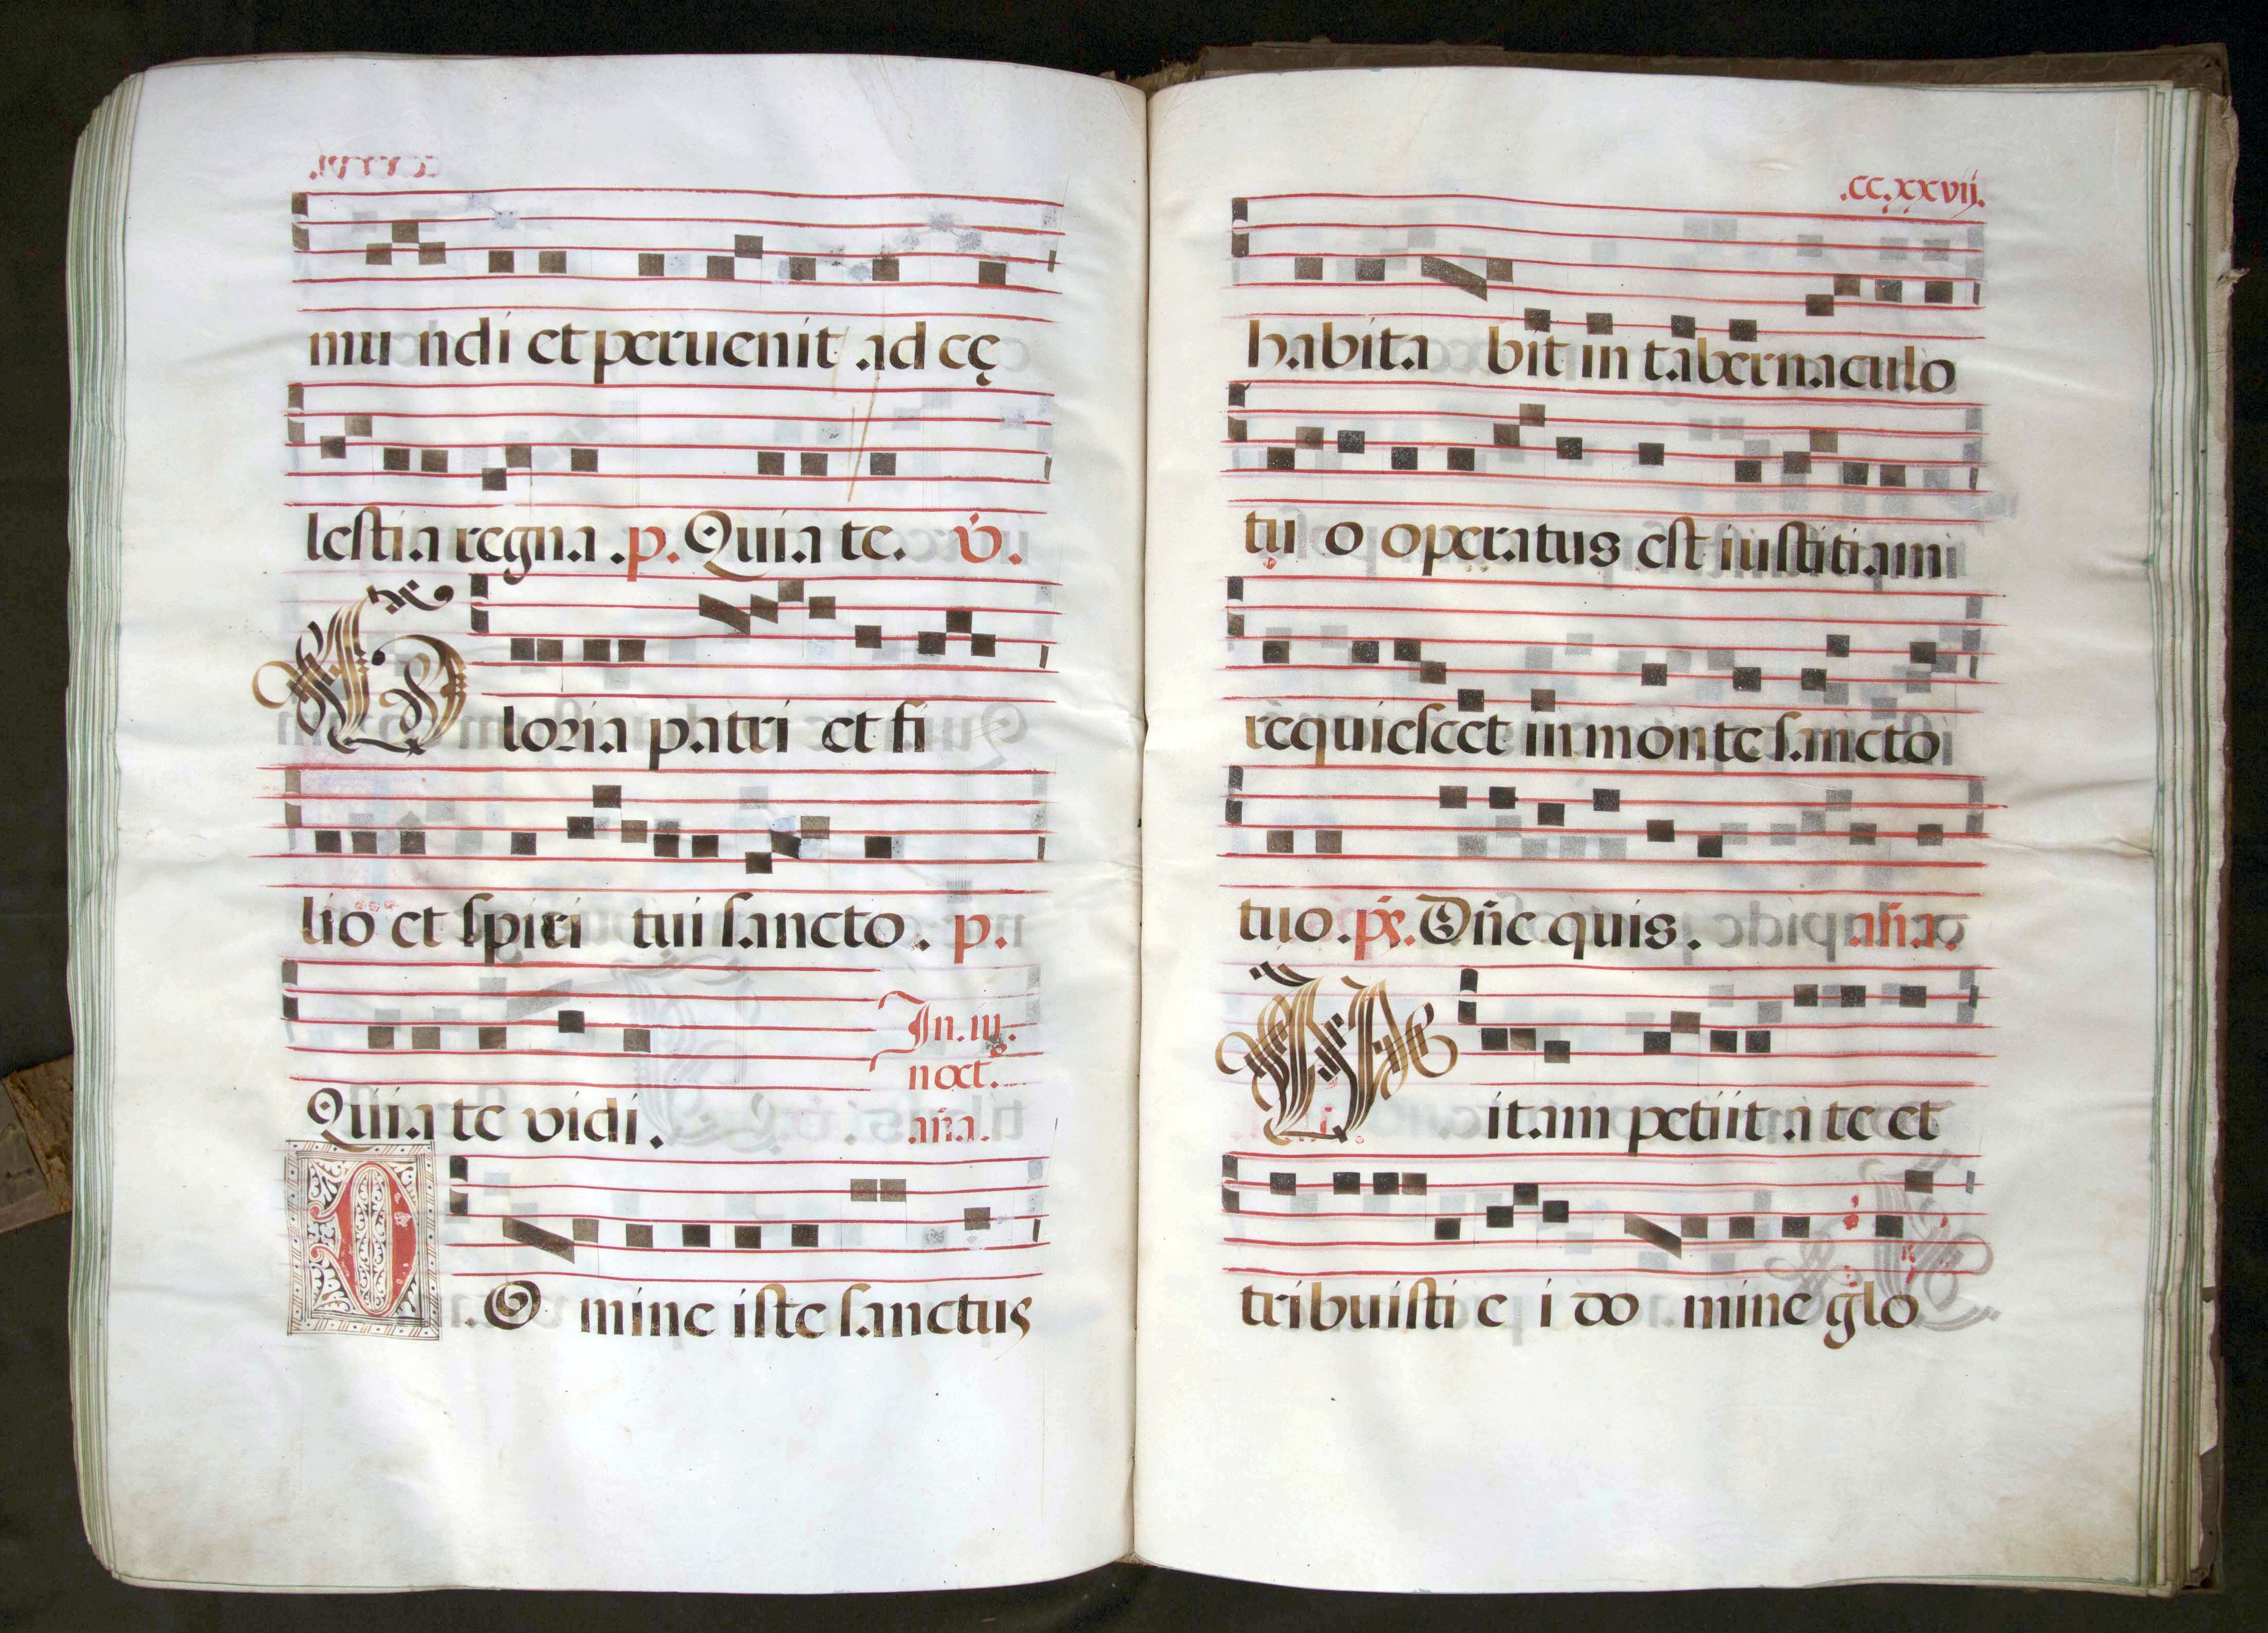 mundi et peruenit ad cę
lestia regna .p. Quia te. v̄.
Gloria patri et fi
lio et spiri tui sancto. p.
In. iij.
noct.
Quia te vidi. añ.a.
DOmine iste sanctus
.cc.xxvij.
habita bit in tabernaculo
tu o operatus est iustitiam
requiescet in monte sancto
tuo.ps. Dñe quis. añ.a.
Vitam petiit a te et
tribuisti e i do mine glo